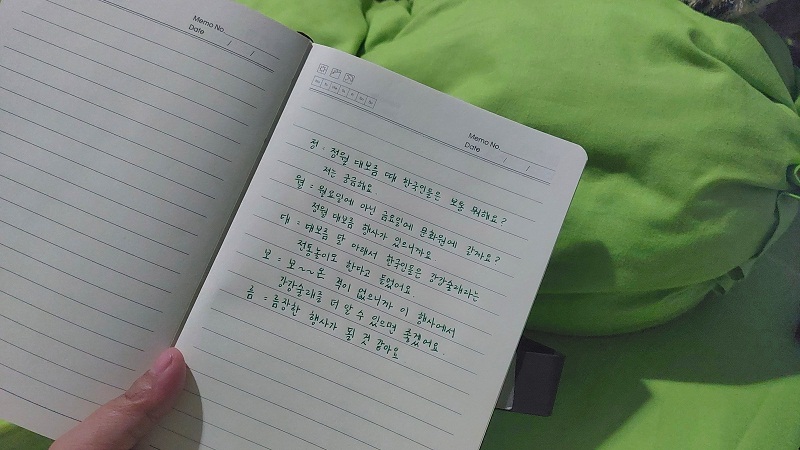 Memo No.
Date / /
Memo No.
Date / /
정 : 정월 대보름 때 한국인들은 보통 뭐해요?
저는 궁금해요
월 = 월요일에 아닌 금요일에 문화원에 갈까요?
정월 대보름 행사가 있으니까요
대 = 대보름 달 아래서 한국인들은 강강술래라는
전통놀이도 한다고 들었어요.
보 = 보~~온 적이 없으니까 이 행사에서
강강술래를 더 알 수 있으면 좋겠어요.
름 = 름장한 행사가 될 것 같아요